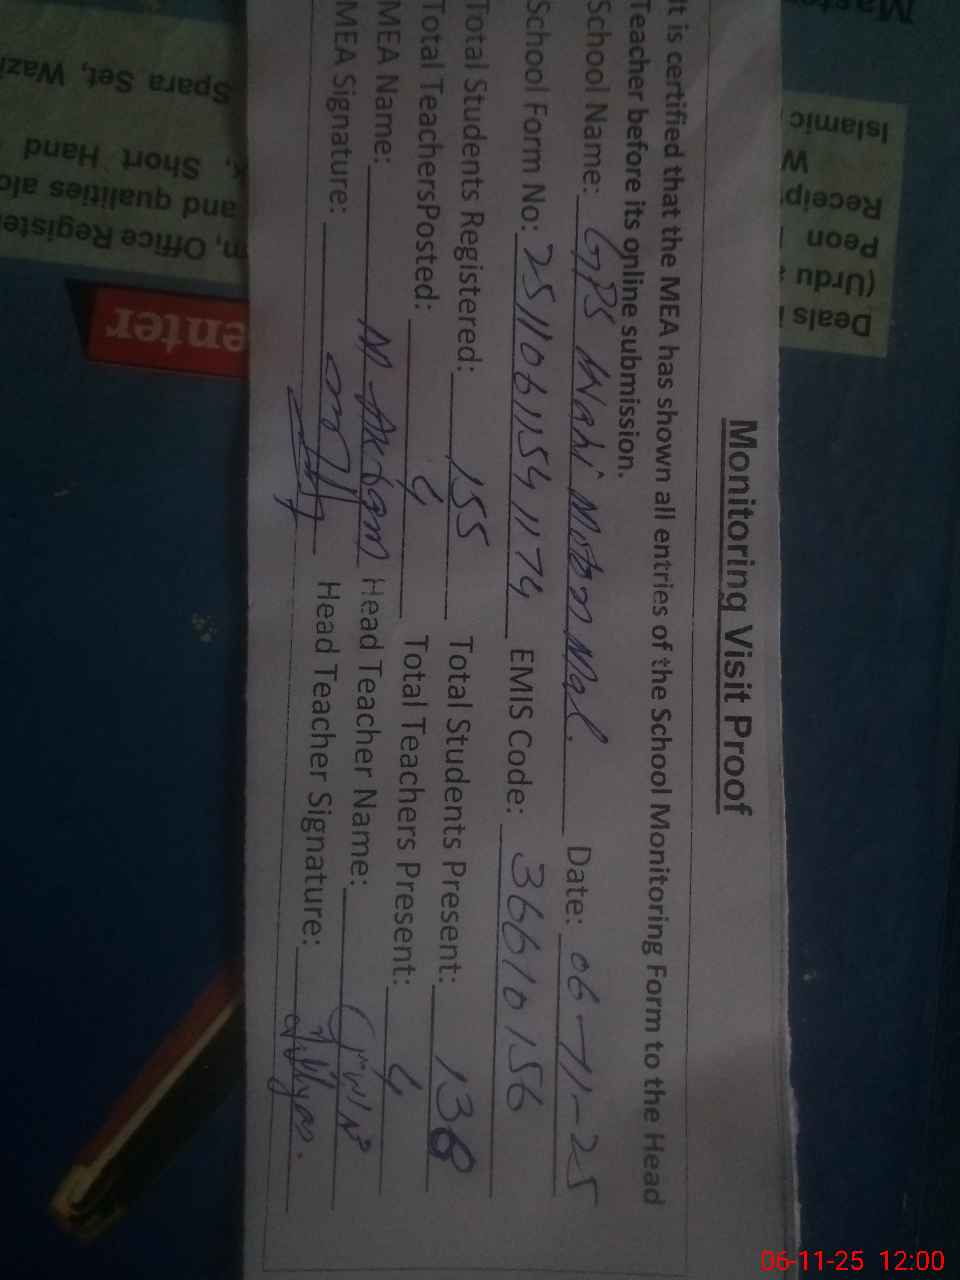 Monitoring Visit Proof
It is certified that the MEA has shown all entries of the School Monitoring Form to the Head
Teacher before its online submission.
School Name: GPS Wahi Date: 06-11-25
School Form No: 2511061154 1174 EMIS Code: 36610156
Total Students Registered: 155 Total Students Present: 138
Total TeachersPosted: 4 Total Teachers Present: 4
MEA Name: M Akram Head Teacher Name:
MEA Signature: Head Teacher Signature:
enter
Office Register
and qualities
Short Hand
Spara Set,
Deals
(Urdu
Peon
Islamic
06-11-25 12:00